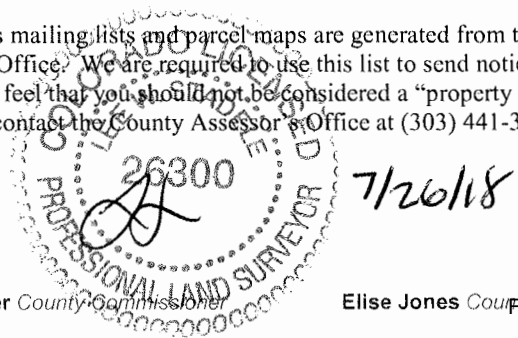 s mailing lists and parcel maps are generated from t
Office. We are required to use this list to send notic
feel that you should not be considered a "property
contact the County Assessor's Office at (303) 441-3
COLORADO LICENSED
26300
PROFESSIONAL LAND SURVEYOR
7/26/18
er County Commissioner
Elise Jones Coun